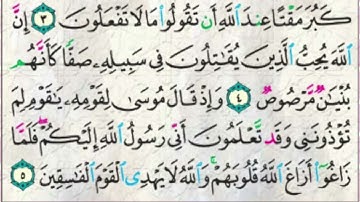 كَبُرَ مَقْتًا عِندَ ٱللَّهِ أَن تَقُولُوا۟ مَا لَا تَفْعَلُونَ ٣ إِنَّ
ٱللَّهَ يُحِبُّ ٱلَّذِينَ يُقَٰتِلُونَ فِى سَبِيلِهِۦ صَفًّا كَأَنَّهُم
بُنْيَٰنٌ مَّرْصُوصٌ ٤ وَإِذْ قَالَ مُوسَىٰ لِقَوْمِهِۦ يَٰقَوْمِ لِمَ
تُؤْذُونَنِى وَقَد تَّعْلَمُونَ أَنِّى رَسُولُ ٱللَّهِ إِلَيْكُمْ ۖ فَلَمَّا
زَاغُوٓا۟ أَزَاغَ ٱللَّهُ قُلُوبَهُمْ ۚ وَٱللَّهُ لَا يَهْدِى ٱلْقَوْمَ ٱلْفَٰسِقِينَ ٥